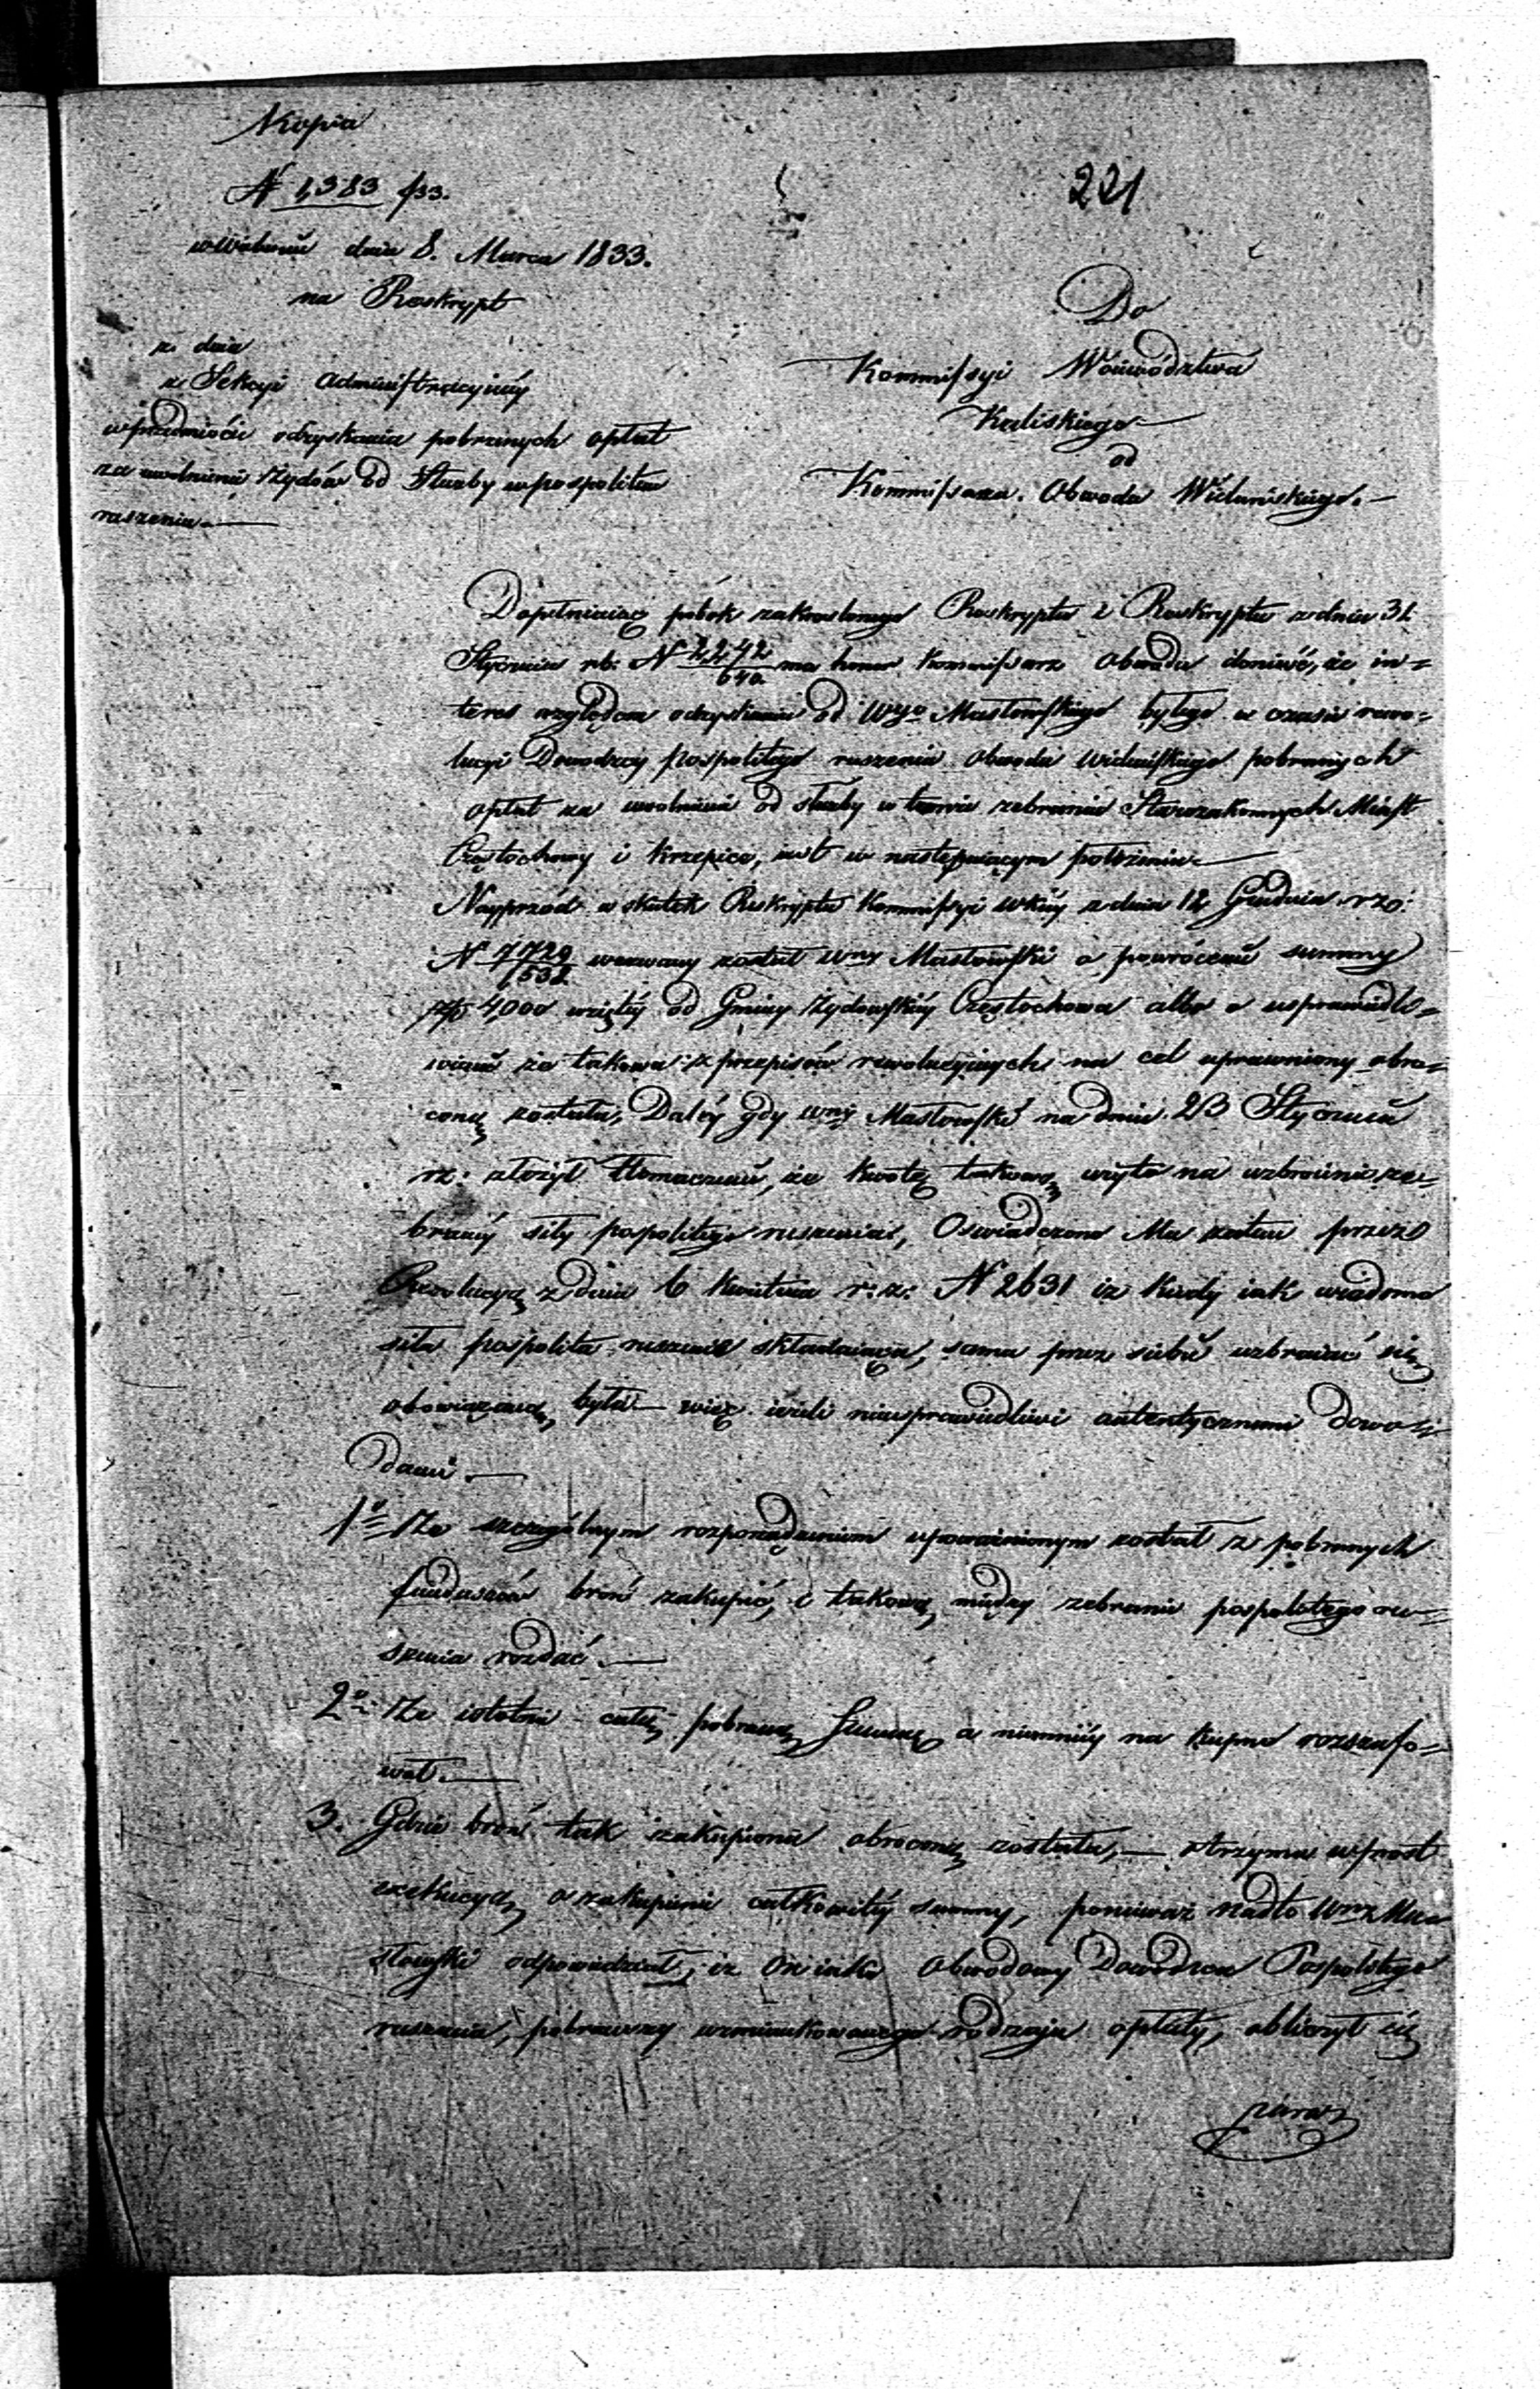 Kopia
N 1,383 /33.
w Wieluniu dnia 8. Marca 1833.
na Reskrypt
z dnia
z Sekcyi Administracyinéy
w przedmiocie odzyskania pobranych opłat
za uwolnienie Żydów od Służby w pospolitem
ruszeniu.—
221
Do
Kommissyi Woiewództwa
Kaliskiego—
od
Kommissarza Obwodu Wieluńskiego.—
Dopełniaiąc pobok zakreslonego Reskryptu i Reskryptu z dnia 31
Stycznia rb. N 2,242/640 ma honor Kommissarz Obwodu donieść, że in=
teres względem odzyskania od Wgo Masłowskiego byłego w czasie rewo=
lucyi Dowodzcy pospolitego ruszenia Obwodu Wieluńskiego pobranych
opłat za uwolnienie od służby w temie zebraniu Starozakonnych Miast
Częstochowy i Krzepice, iest w następuiącym położeniu—
Nayprzód w skutek Reskryptu Kommissyi Wkiéy z dnia 12 Grudnia rzo:
N 7,729/1,532 wezwany został Wny Masłowski o powrócenie summy
złp 4,000 wziętéy od Gminy Żydowskiéy Częstochowa albo o usprawiedli=
wienie że takowa z przepisów rewolucyinych na cel uprawniony obró=
coną została, Daléy gdy Wny Masłowski na dniu 23 Stycznia
rz. złożył tłomaczenie, że kwotę takową użyto na uzbroienie ze=
branéy siły pospolitego ruszenia, Oswiadczono Mu zostało przez
Rezolucyą z dnia 6 Kwietnia r. z. N 2631 iż kiedy iak wiadomo
siła pospolite ruszenie składaiąca, sama przez siebie uzbraiać się
obowiązaną była— więc ieżeli nieusprawiedliwi autentycznemi dowo=
dami.—
1o Że szczególnym rozporządzeniem upoważnionym został z pobranych
funduszów broń zakupić, i takową między zebranie pospolitego ru=
szenia rozdać.—
2o Że istotnie całą pobraną Summę a niemniéy na kupno rozszafo=
wał.—
3. Gdzie broń tak zakupiona obróconą została,— otrzyma wprost
exekucyą o zakupienie całkowitéy summy, ponieważ nadto Wny Ma
słowski odpowiedział, iż On iako Obwodowy Dowodzca Pospolitego
ruszenia, pobrawszy wzmiankowanego rodzaju opłaty, obliczył się